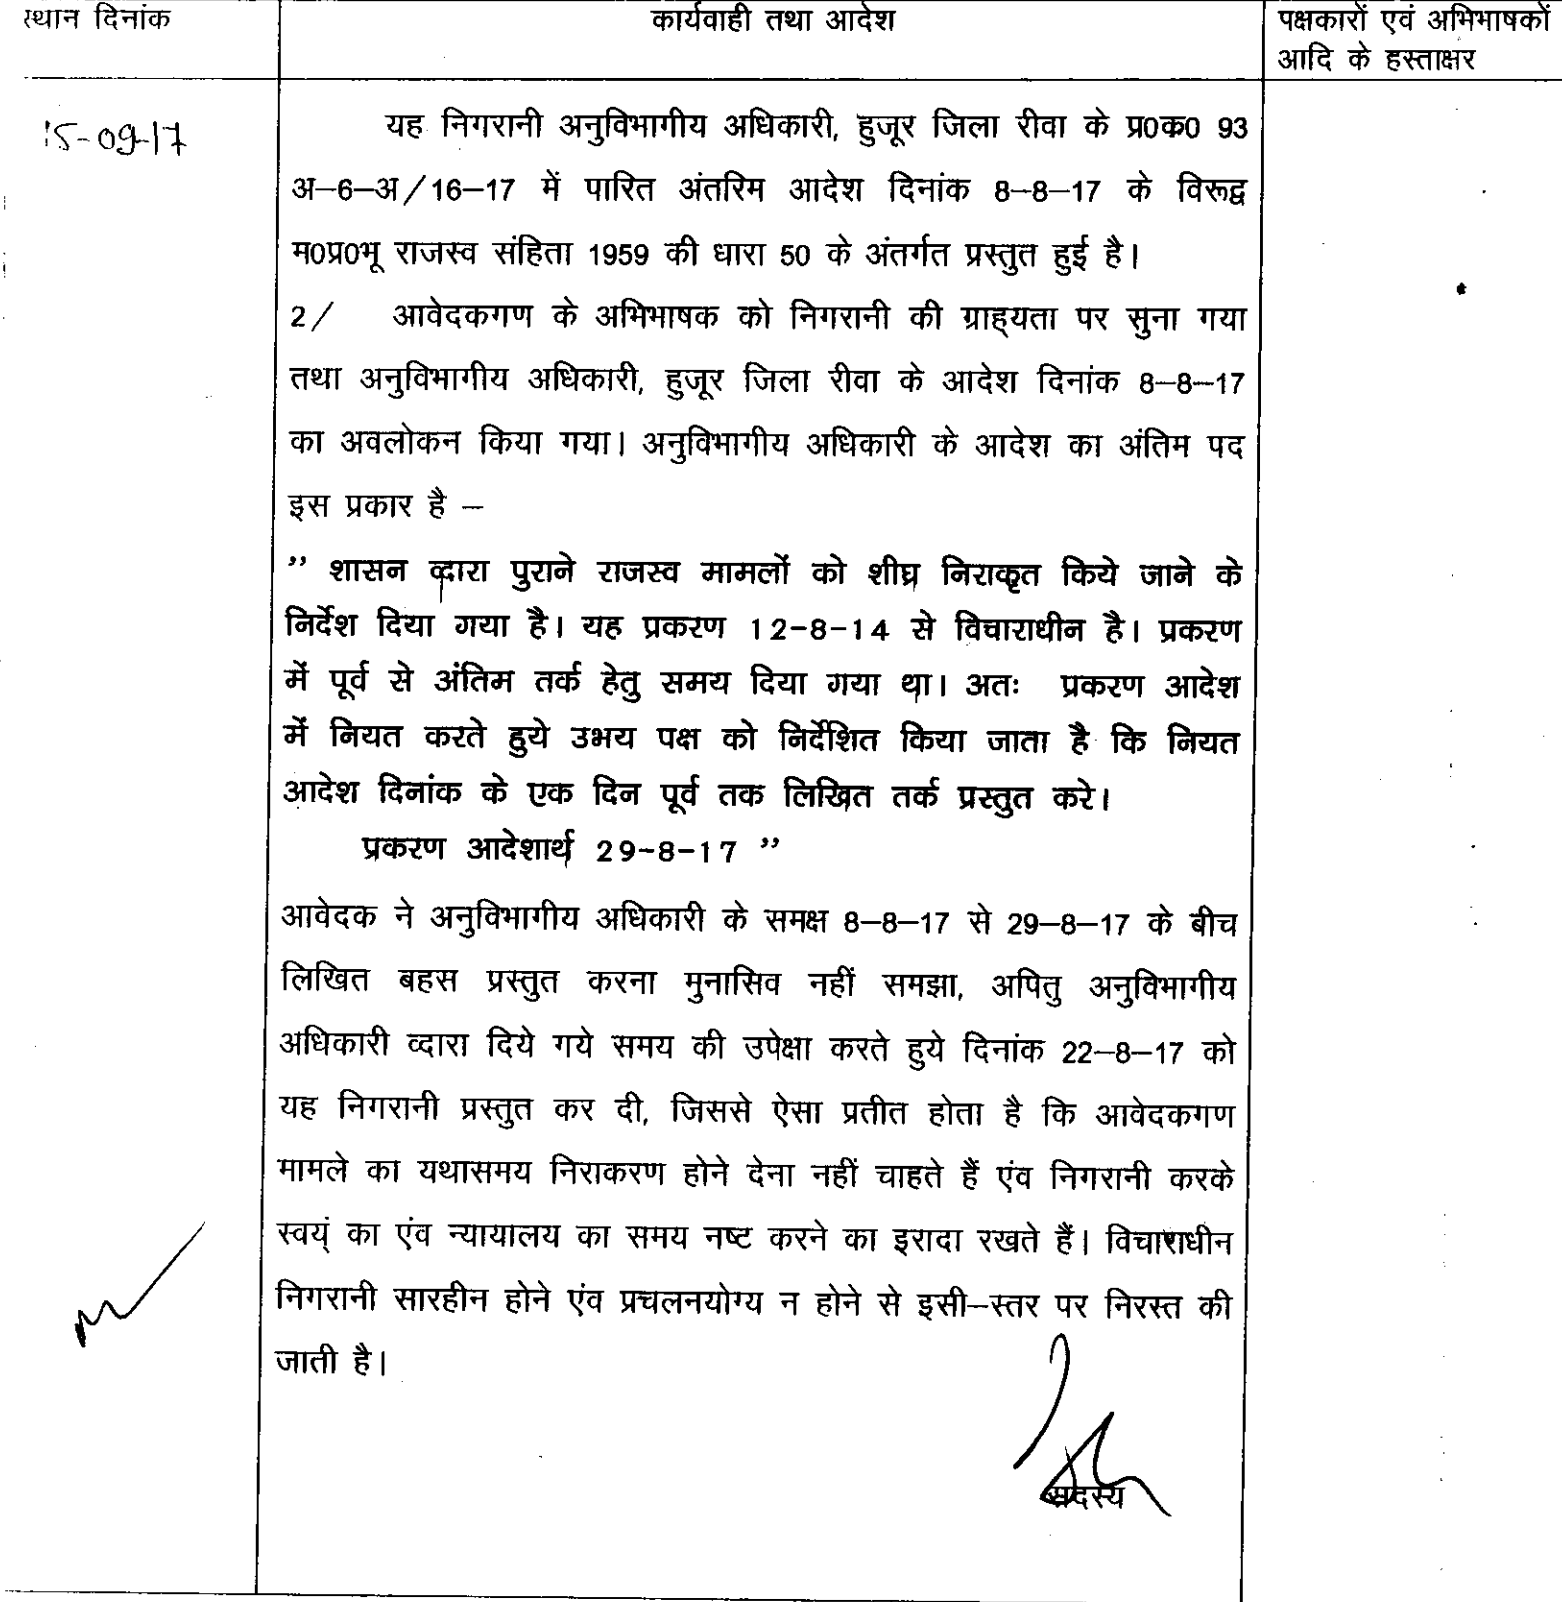 स्थान दिनांक
कार्यवाही तथा आदेश
पक्षकारों एवं अभिभाषकों
आदि के हस्ताक्षर
15-09-17
यह निगरानी अनुविभागीय अधिकारी, हुजूर जिला रीवा के प्र0क0 93
अ–6–अ/16–17 में पारित अंतरिम आदेश दिनांक 8–8–17 के विरूद्व
म0प्र0भू राजस्व संहिता 1959 की धारा 50 के अंतर्गत प्रस्तुत हुई है।
2/ आवेदकगण के अभिभाषक को निगरानी की ग्राह्यता पर सुना गया
तथा अनुविभागीय अधिकारी, हुजूर जिला रीवा के आदेश दिनांक 8–8–17
का अवलोकन किया गया। अनुविभागीय अधिकारी के आदेश का अंतिम पद
इस प्रकार है –
’’ शासन व्दारा पुराने राजस्व मामलों को शीघ्र निराकृत किये जाने के
निर्देश दिया गया है। यह प्रकरण 12-8-14 से विचाराधीन है। प्रकरण
में पूर्व से अंतिम तर्क हेतु समय दिया गया था। अतः प्रकरण आदेश
में नियत करते हुये उभय पक्ष को निर्देशित किया जाता है कि नियत
आदेश दिनांक के एक दिन पूर्व तक लिखित तर्क प्रस्तुत करे।
प्रकरण आदेशार्थ 29-8-17 ’’
आवेदक ने अनुविभागीय अधिकारी के समक्ष 8–8–17 से 29–8–17 के बीच
लिखित बहस प्रस्तुत करना मुनासिव नहीं समझा, अपितु अनुविभागीय
अधिकारी व्दारा दिये गये समय की उपेक्षा करते हुये दिनांक 22–8–17 को
यह निगरानी प्रस्तुत कर दी, जिससे ऐसा प्रतीत होता है कि आवेदकगण
मामले का यथासमय निराकरण होने देना नहीं चाहते हैं एंव निगरानी करके
स्वयं का एंव न्यायालय का समय नष्ट करने का इरादा रखते हैं। विचाराधीन
निगरानी सारहीन होने एंव प्रचलनयोग्य न होने से इसी–स्तर पर निरस्त की
जाती है।
सदस्य